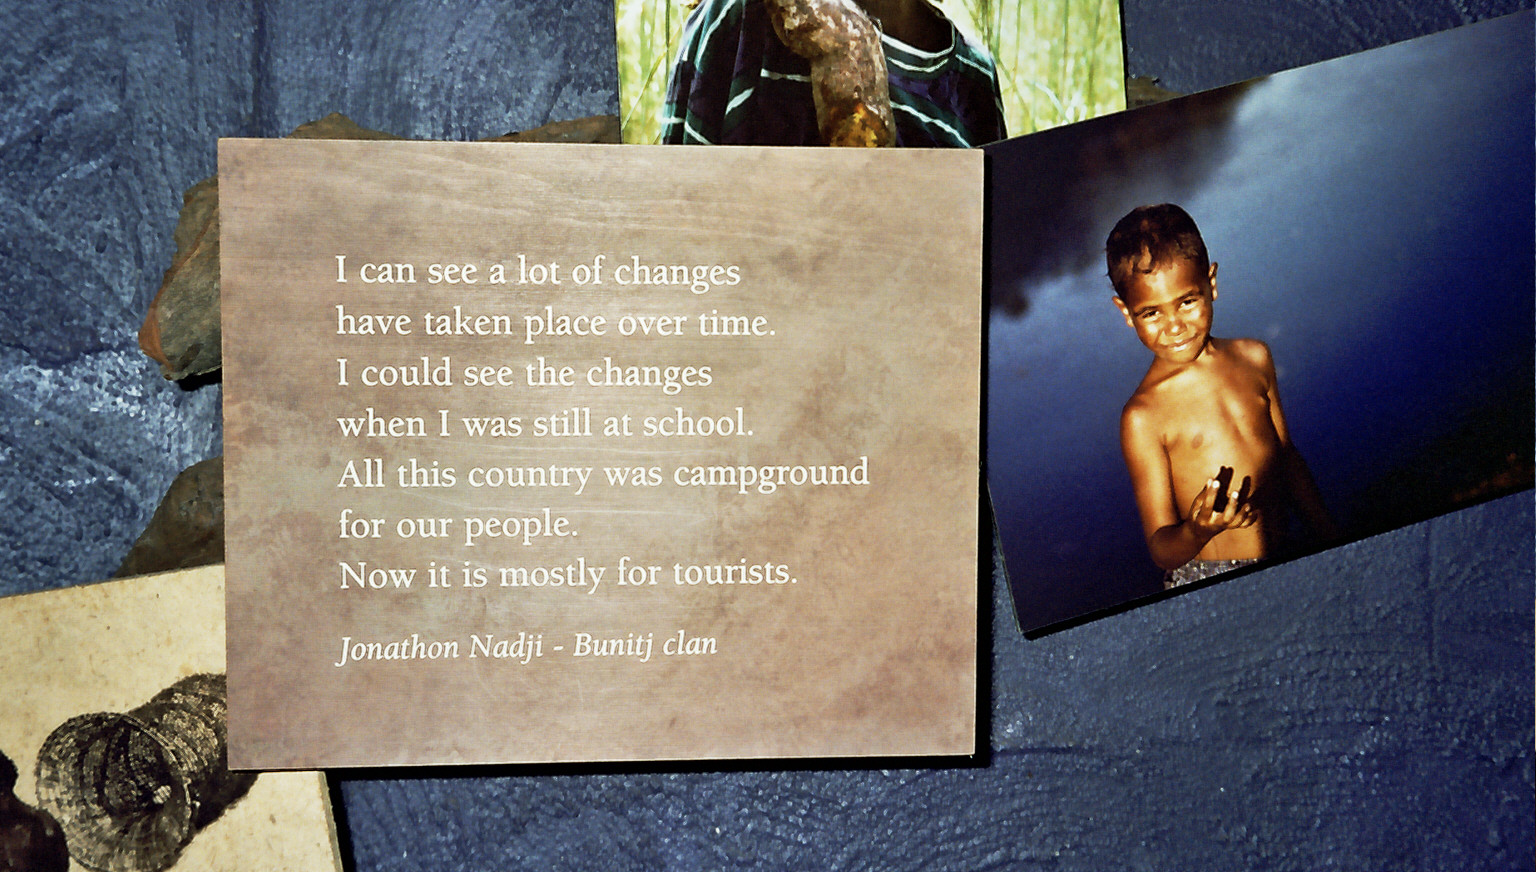 I can see a lot of changes
have taken place over time.
I could see the changes
when I was still at school.
All this country was campground
for our people.
Now it is mostly for tourists.
Jonathon Nadji - Bunitj clan